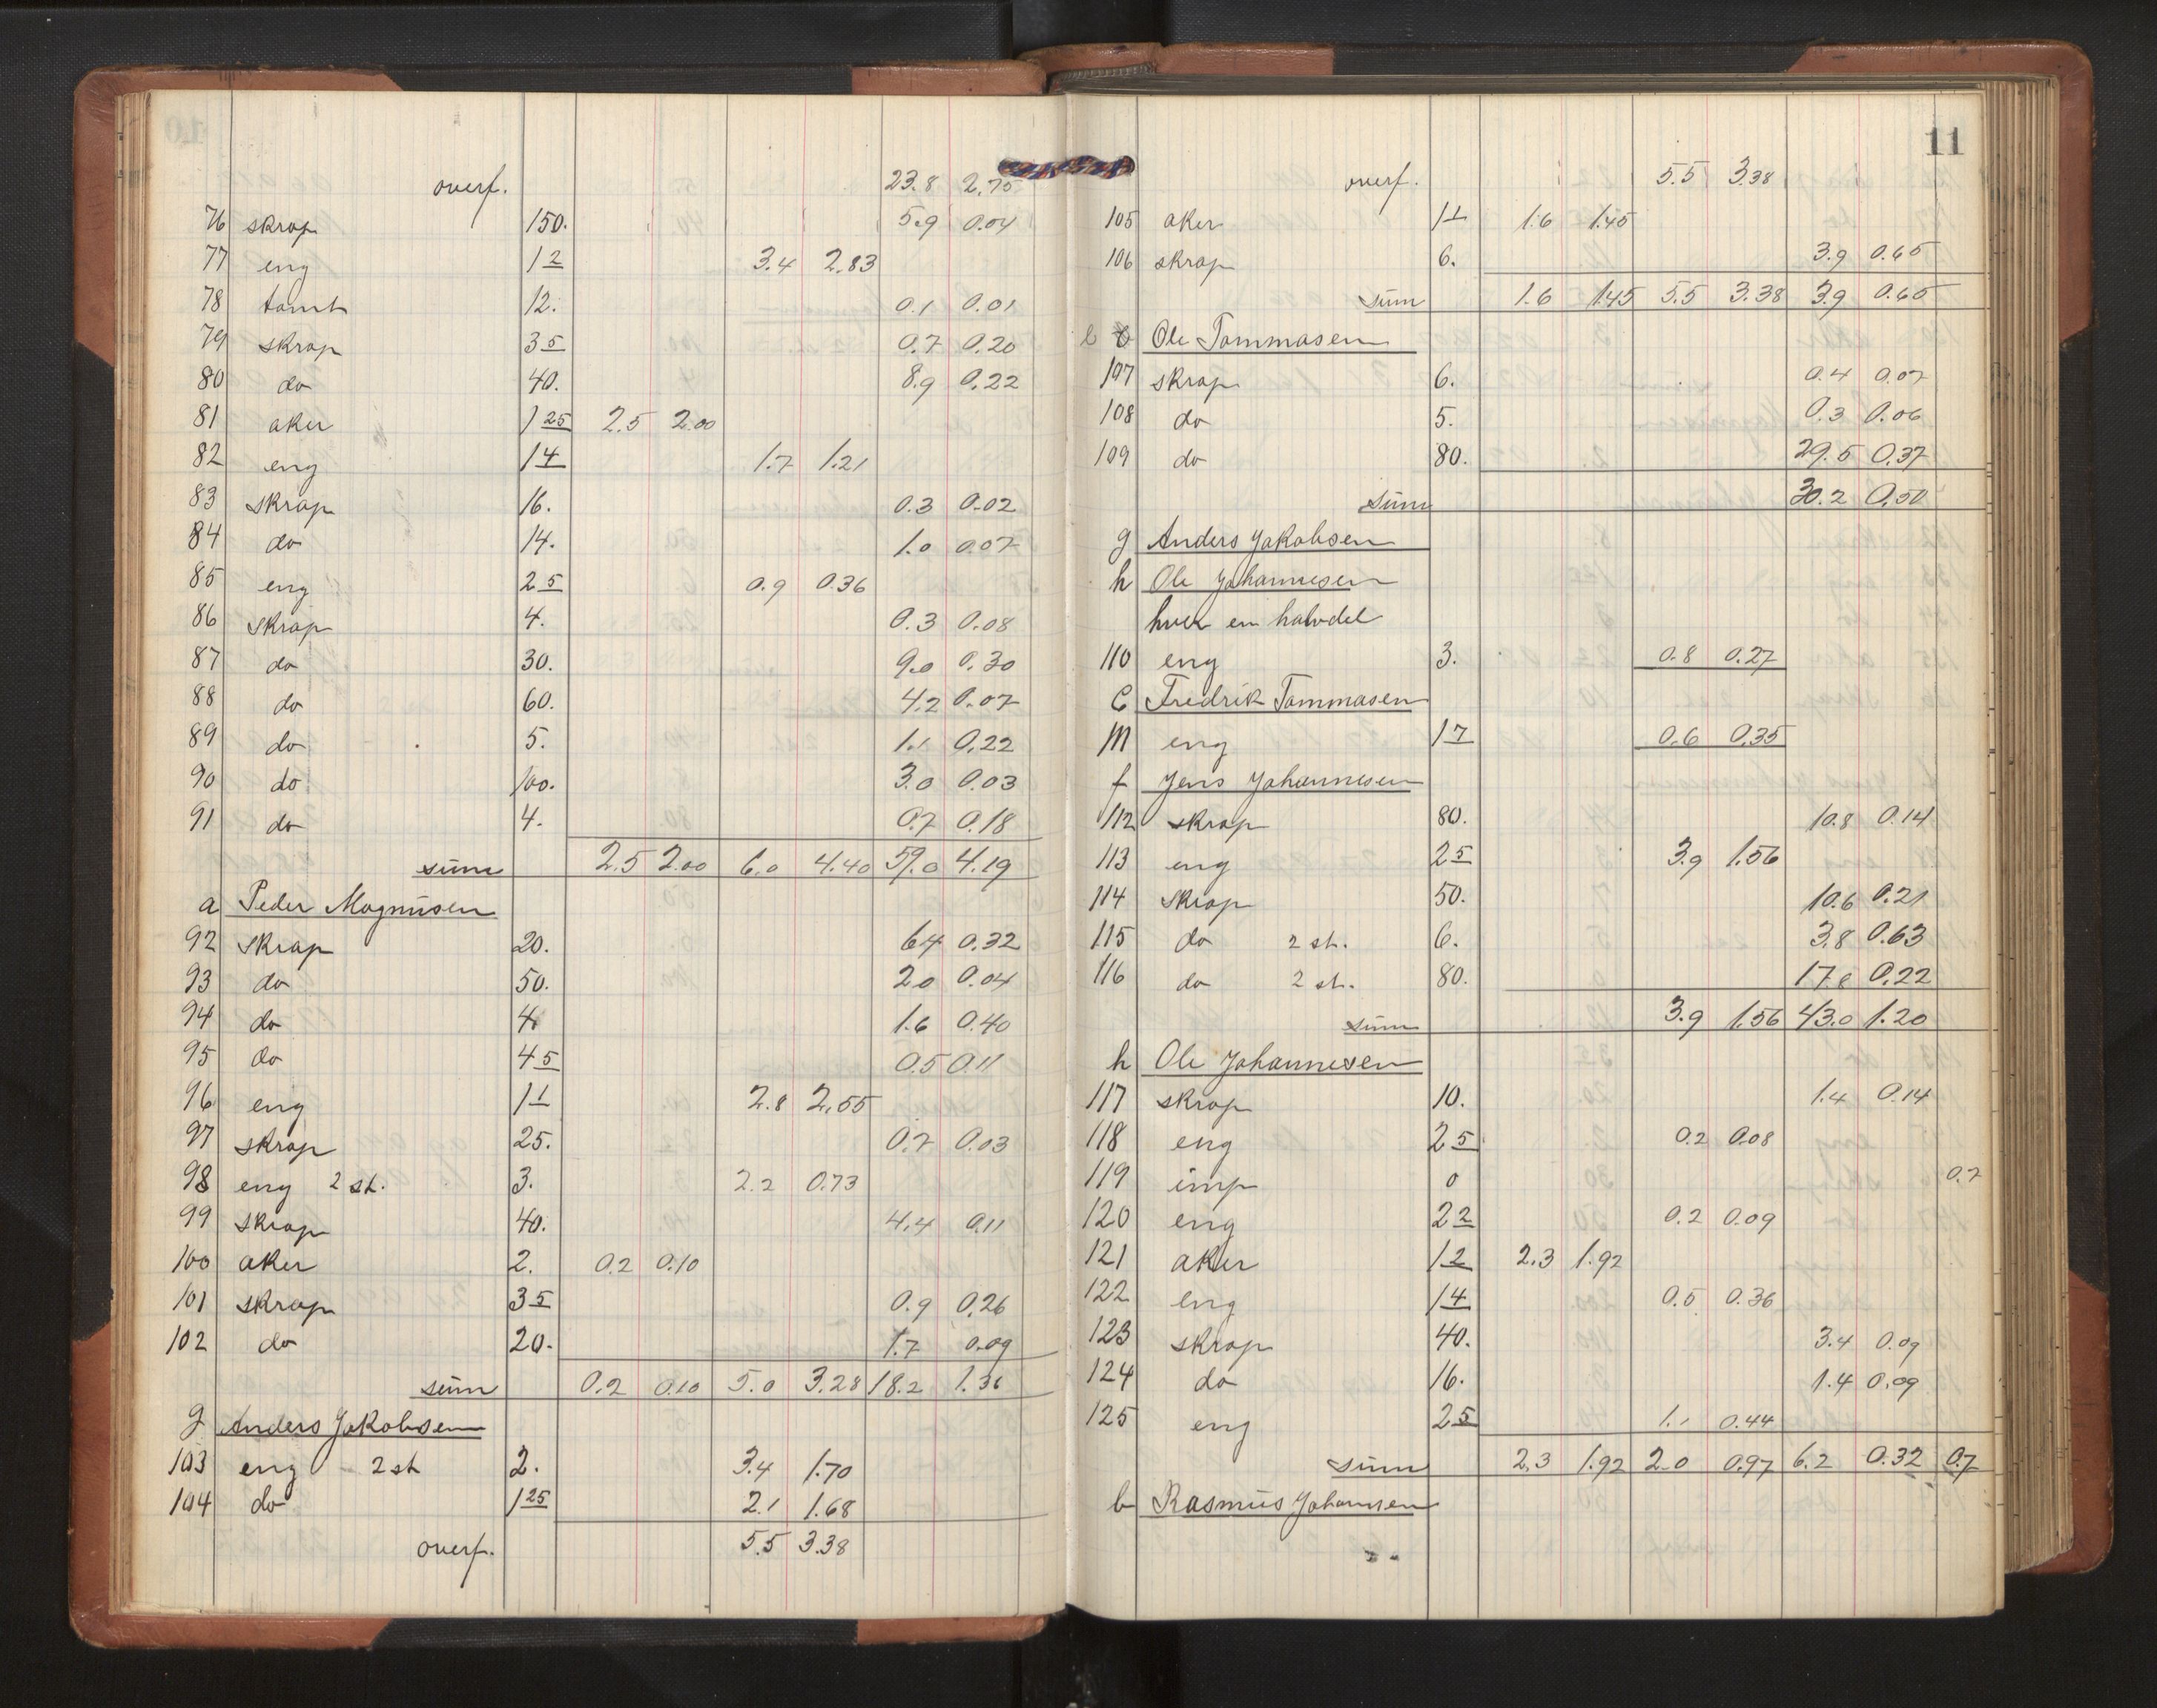 overf. 23.8 2.75
76 skrap 150. 5.9 0.04
77 eng 1 2 3.4 2.83
78 tomt 12. 0.1 0.01
79 skrap 3 5 0.7 0.20
80 do 40. 8.9 0.22
81 aker 1 25 2.5 2.00
82 eng 1 4 1.7 1.21
83 skrap 16. 0.3 0.02
84 do 14. 1.0 0.07
85 eng 2 5 0.9 0.36
86 skrap 4. 0.3 0.08
87 do 30. 9.0 0.30
88 do 60. 4.2 0.07
89 do 5. 1.1 0.22
90 do 100. 3.0 0.03
91 do 4. 0.7 0.18
sum 2.5 2.00 6.0 4.40 59.0 4.19
a Peder Magnusen
92 skrap 20. 6.4 0.32
93 do 50. 2.0 0.04
94 do 4. 1.6 0.40
95 do 4 5 0.5 0.11
96 eng 1 1 2.8 2.55
97 skrap 25. 0.7 0.03
98 eng 2 st. 3. 2.2 0.73
99 skrap 40. 4.4 0.11
100 aker 2. 0.2 0.10
101 skrap 3 5 0.9 0.26
102 do 20. 1.7 0.09
sum 0.2 0.10 5.0 3.28 18.2 1.36
g Anders Jakobsen
103 eng - 2 st 2. 3.4 1.70
104 do 1 25 2.1 1.68
overf. 5.5 3.38
11
overf. 5.5 3.38
105 aker 1 1 1.6 1.45
106 skrap 6. 3.9 0.65
sum 1.6 1.45 5.5 3.38 3.9 0.65
Ole Tommasen
107 skrap 6. 0.4 0.07
108 do 5. 0.3 0.06
109 do 80. 29.5 0.37
sum 30.2 0.50
g Anders Jakobsen
h Ole Johannesen
hver en halvdel
110 eng 3. 0.8 0.27
C Fredrik Tommasen
111 eng 1 7 0.6 0.35
f Jens Johannesen
112 skrap 80. 10.8 0.14
113 eng 2 5 3.9 1.56
114 skrap 50. 10.6 0.21
115 do 2 st. 6. 3.8 0.63
116 do 2 st. 80. 17.8 0.22
sum 3.9 1.56 43.0 1.20
h Ole Johannesen
117 skrap 10. 1.4 0.14
118 eng 2 5 0.2 0.08
119 imp 0 0.7
120 eng 2 2 0.2 0.09
121 aker 1 2 2.3 1.92
122 eng 1 4 0.5 0.36
123 skrap 40. 3.4 0.09
124 do 16. 1.4 0.09
125 eng 2 5 1.1 0.44
sum 2.3 1.92 2.0 0.97 6.2 0.32 0.7
b Rasmus Johansen